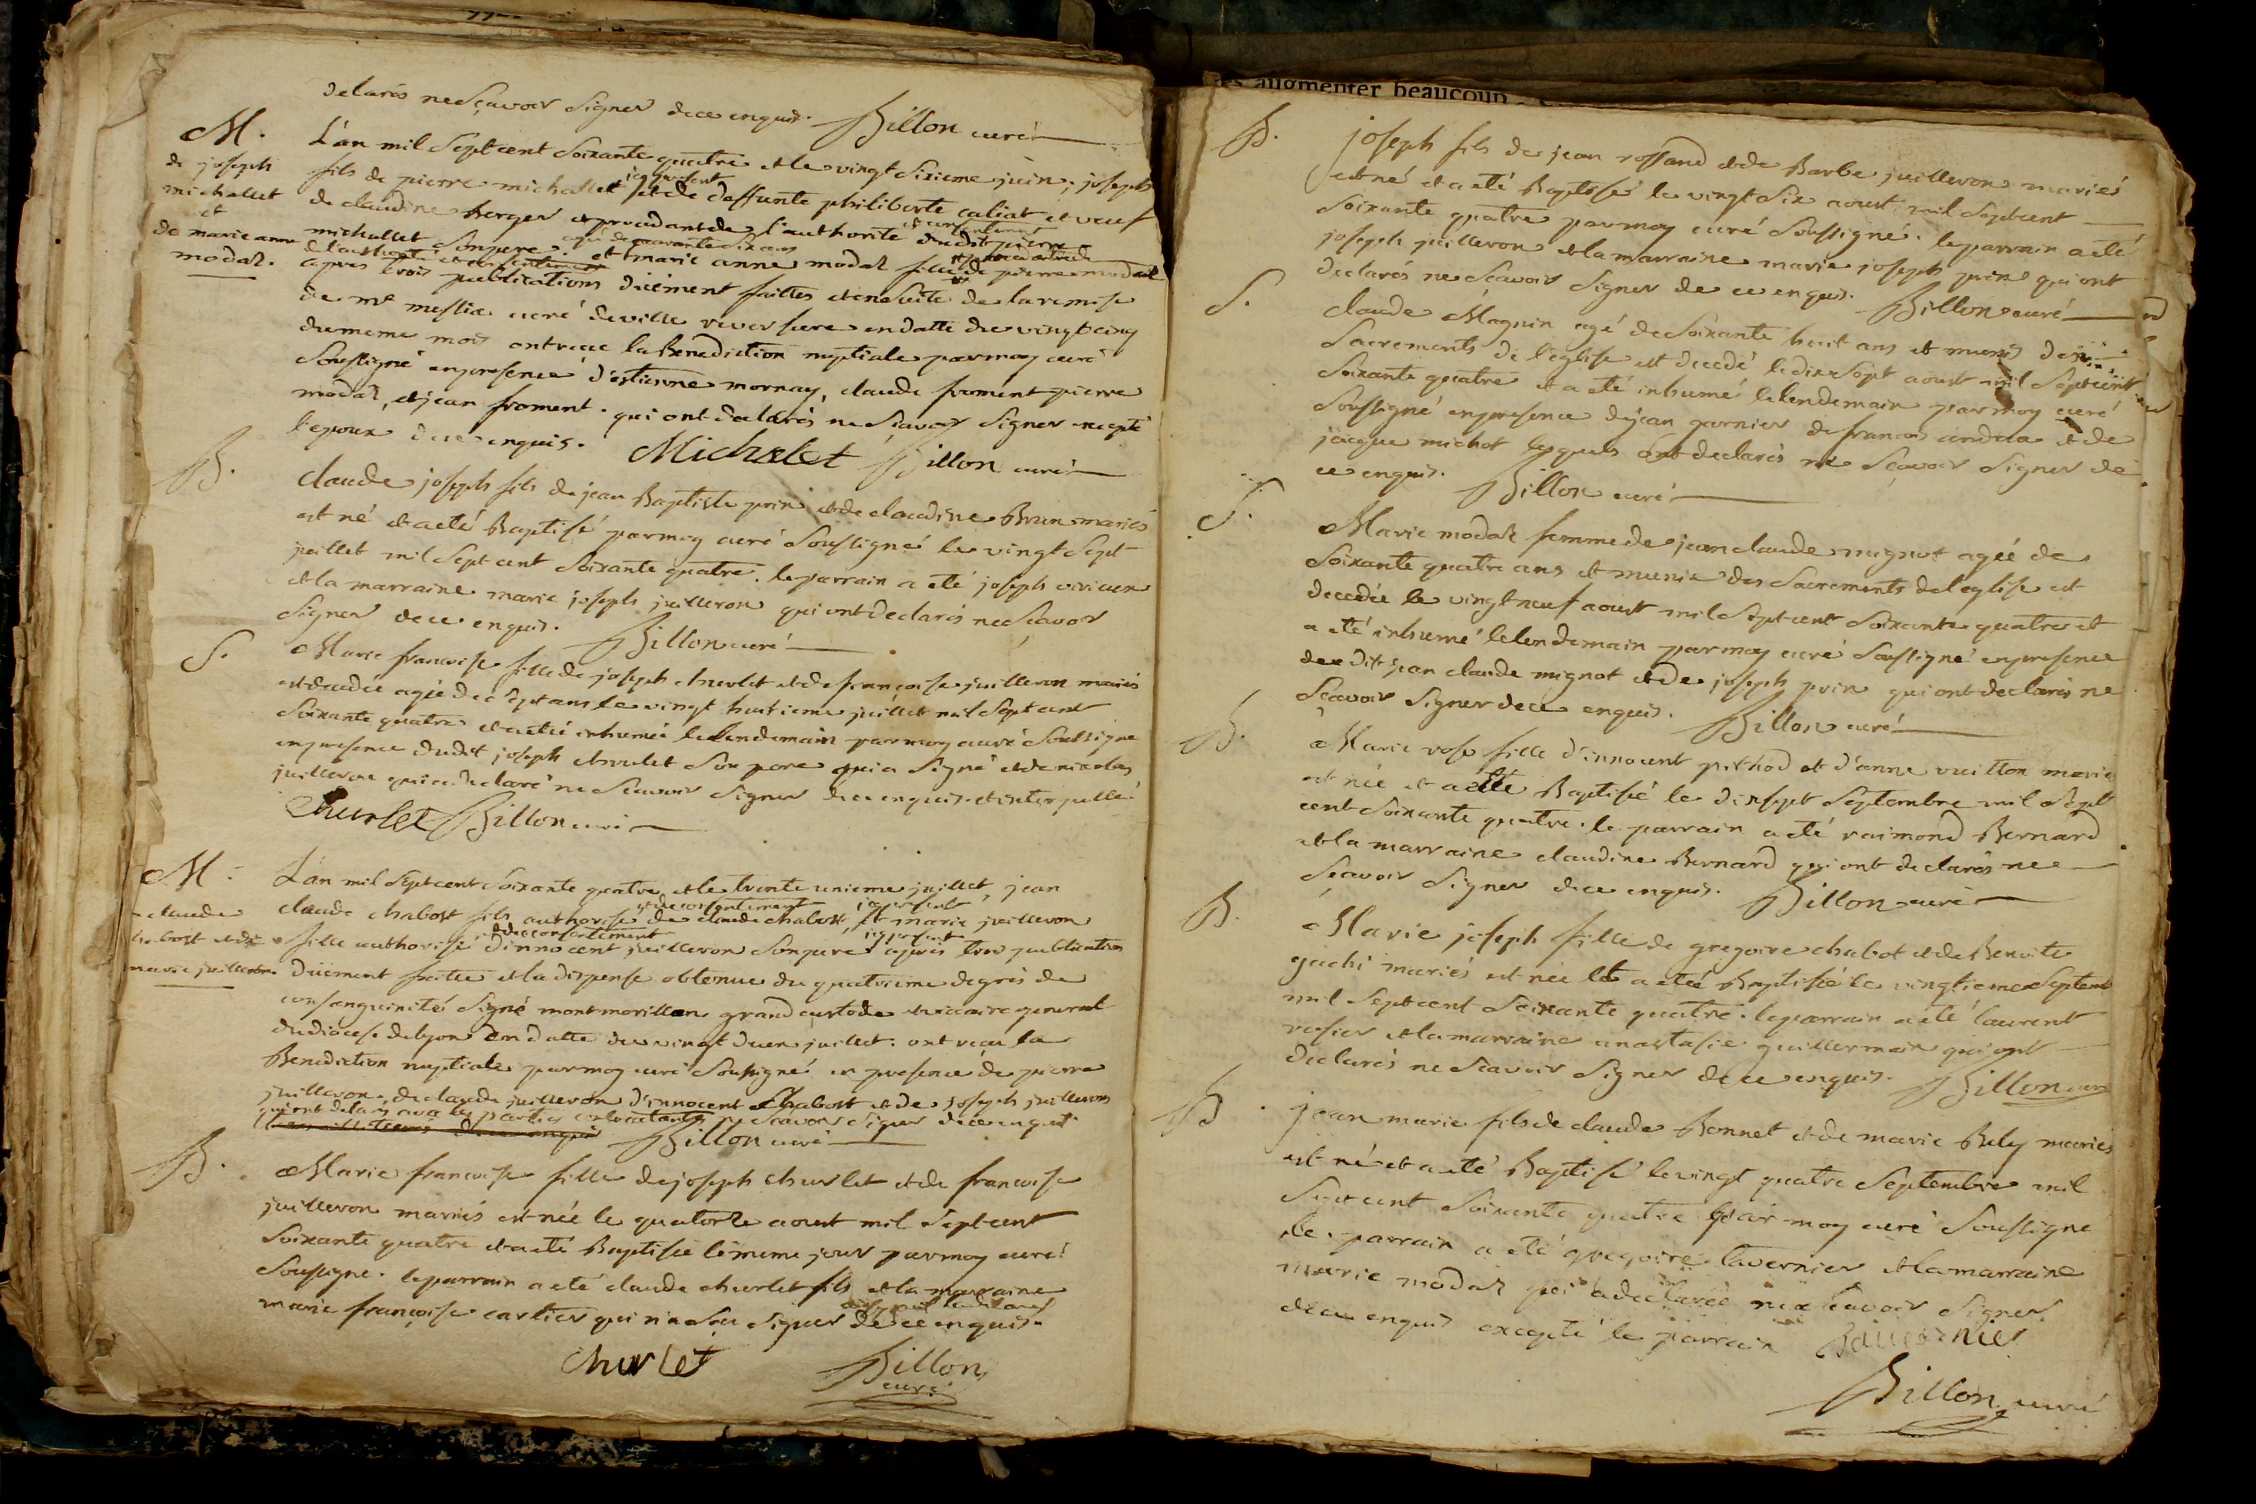 declarés ne sçavoir signer de ce enquis. Billon curé
M.
de joseph
michallet
et
de marie anne
modas.
L'an mil sept cent soixante quatre et le vingt sixieme juin, joseph
fils de pierre michallet icy present et de deffunte philiberte caliat et veuf
de claudine Berger et procedant de l'authorité et consentement dudit pierre
michallet son pere agé de quarante six ans et marie anne modas fille de pierre modas
de l'authorité et consentement
apres trois publications düement faittes et ensuite de la remise
de mr meslia curé de ville reversure en datte du vingt cinq
du meme mois ont reçue la Benediction nuptiale par moy curé
soussigné en presence d'estienne mornay, claude froment pierre
modas, et jean froment. qui ont declarés ne sçavoir signer excepté
l'epoux de ce enquis. Michalet Billon curé
B.
claude joseph fils de jean Baptiste poin et de claudine Brun mariés
est né et a eté Baptisé par moy curé soussigné le vingt sept
juillet mil sept cent soixante quatre. le parrain a eté joseph vivien
et la marraine marie joseph juilleron qui ont declarés ne scavoir
signer de ce enquis. Billon curé
S.
Marie francoise fille de joseph churlet et de françoise juilleron mariés
est decedée agée de sept ans le vingt huitieme juillet mil sept cent
soixante quatre et a eté inhumée le lendemain par moy curé soussigné
en presence dudit joseph churlet son pere qui a signé et de nicolas
juilleron qui a declaré ne scavoir signer de ce enquis et interpellé.
Churlet Billon curé
M.
claude
chabost et de
marie juilleron
L'an mil sept cent soixante quatre, et le trente unieme juillet, jean
claude chabost fils authorisé et de consentement de claude chabost, icy present et marie juilleron
fille authorisé et de consentement d'innocent juilleron son pere icy present apres trois publications
düement faittes et la dispense obtenue du quatrieme degrés de
consanguinités signé montmorillon grand custode et vicaire general
du diocese de lyon en datte du vingt deux juillet. ont reçu la
Benediction nuptiale par moy curé soussigné en presence de pierre
juilleron, de claude juilleron d'innocent Chabost et de joseph juilleron
qui ont declarés avec les parties contractantes ne scavoir signer de ce enquis
Billon curé
B.
Marie francoise fille de joseph churlet et de francoise
juilleron mariés est née le quatorze aoust mil sept cent
soixante quatre et a eté Baptisée le meme jour par moy curé
soussigné. le parrain a eté claude churlet fils et la marraine
marie françoise cartier qui n'a sçu signer de ce enquis.
churlet Billon
curé
B.
joseph fils de jean rossand et de Barbe juilleron mariés
est né et a eté Baptisé le vingt six aoust mil sept cent
soixante quatre par moy curé soussigné. le parrain a eté
joseph juilleron et la marraine marie joseph poin qui ont
declarés ne scavoir signer de ce enquis. Billon curé
S.
claude Magnin agé de soixante huit ans et munis des
sacrements de l'eglise est decedé le dix sept aoust mil sept cent
soixante quatre et a eté inhumé le lendemain par moy curé
soussigné en presence de jean garnier de francois andrea et de
jacque michot lesquels ont declarés ne sçavoir signer de
ce enquis. Billon curé
S.
Marie modas femme de jean claude mignot agée de
soixante quatre ans et munie des sacrements de l'eglise est
decedée le vingt neuf aoust mil sept cent soixante quatre et
a eté inhumé le lendemain par moy curé soussigné en presence
du dit jean claude mignot et de joseph poin qui ont declarés ne
sçavoir signer de ce enquis. Billon curé
B.
Marie rose fille d'innocent pethod et d'anne vuitton mariés
est née et a eté Baptisé le dix sept septembre mil sept
cent soixante quatre. le parrain a eté raimond Bernard
et la marraine claudine Bernard qui ont declarés ne
sçavoir signer de ce enquis. Billon curé
B.
Marie joseph fille de gregoire chabot et de Benoite
gachi mariés est née et a eté Baptisée le vingtieme septembre
mil sept cent soixante quatre. le parrain a eté laurent
rosier et la marraine anastasie guillermain qui ont
declarés ne scavoir signer de ce enquis. Billon curé
B.
jean marie fils de claude Bonnet et de marie Buly mariés
est né et a eté Baptisé le vingt quatre septembre mil
sept cent soixante quatre par moy curé soussigné
le parrain a eté gregoire tavernier et la marraine
marie modas qui a declarée ne scavoir signer
de ce enquis excepté le parrain Tavernier
Billon curé